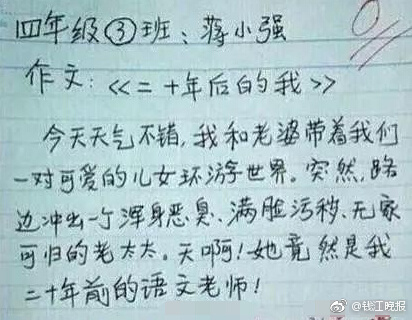 四年级③班：蒋小强
0
作文：<<二十年后的我>>
今天天气不错，我和老婆带着我们
一对可爱的儿女环游世界。突然，路
边冲出一个浑身恶臭、满脸污秽、无家
可归的老太太。天啊！她竟然是我
二十年前的语文老师！
@钱江晚报